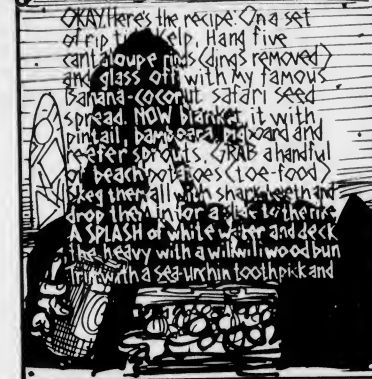 OKAY Here's the recipe: On a set
of rip tide kelp, Hang five
cantaloupe rinds (dings removed)
and glass off with my famous
Banana-coconut safari seed
spread. NOW blanket it with
pintail, pigboard and
reefer sprouts. GRAB a handful
of beach potatoes (toe-food)
Skeg them all with shark teeth and
drop they in for a to the rice
A SPLASH of white water and deck
the heavy with a wiliwili wood bun
Trim with a sea-urchin toothpick and